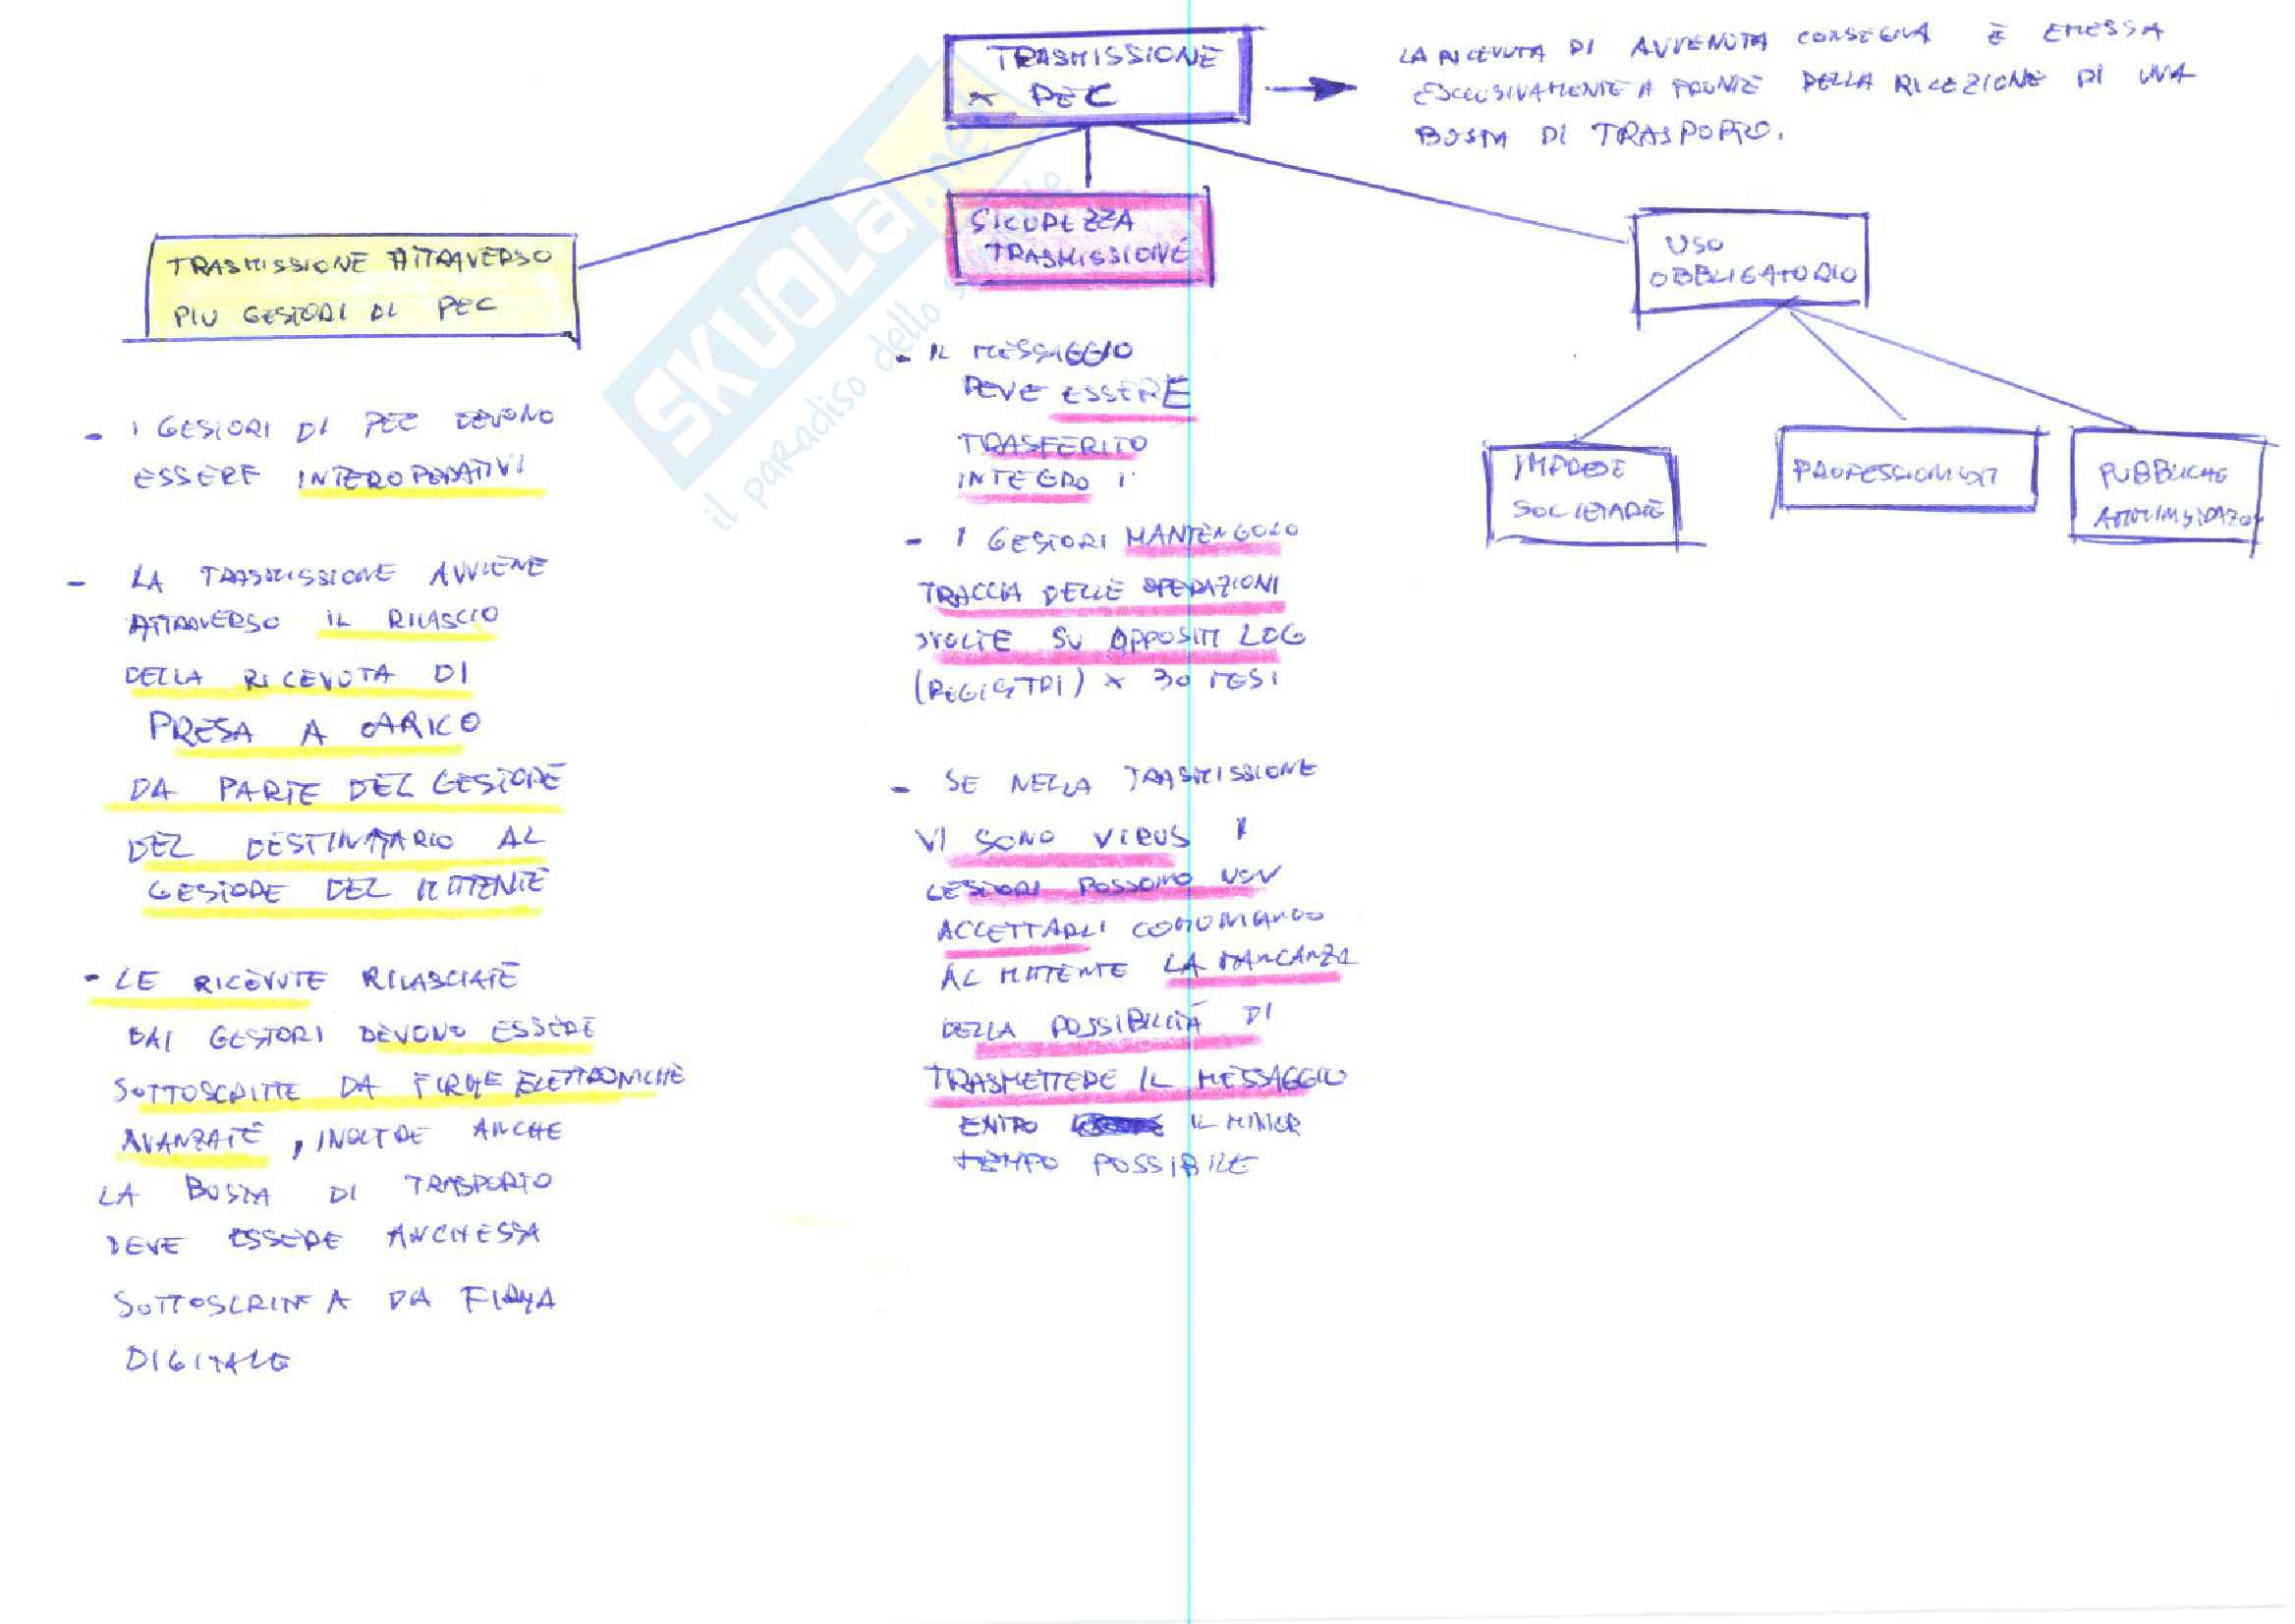 TRASMISSIONE
x PEC
LA RICEVUTA DI AVVENUTA CONSEGNA È EMESSA
ESCLUSIVAMENTE A FRONTE DELLA RICEZIONE DI UNA
BUSTA DI TRASPORTO.
TRASMISSIONE ATTRAVERSO
PIU GESTORI DI PEC
- I GESTORI DI PEC DEVONO
ESSERE INTEROPERATIVI
- LA TRASMISSIONE AVVIENE
ATTRAVERSO IL RILASCIO
DELLA RICEVUTA DI
PRESA A CARICO
DA PARTE DEL GESTORE
DEL DESTINATARIO AL
GESTORE DEL MITTENTE
- LE RICEVUTE RILASCIATE
DAI GESTORI DEVONO ESSERE
SOTTOSCRITTE DA FIRME ELETTRONICHE
AVANZATE, INOLTRE ANCHE
LA BUSTA DI TRASPORTO
DEVE ESSERE ANCHESSA
SOTTOSCRITTA DA FIRMA
DIGITALE
SICUREZZA
TRASMISSIONE
- IL MESSAGGIO
DEVE ESSERE
TRASFERITO
INTEGRO
- I GESTORI MANTENGONO
TRACCIA DELLE OPERAZIONI
SVOLTE SU APPOSITI LOG
(REGISTRI) x 30 MESI
- SE NELLA TRASMISSIONE
VI SONO VIRUS I
GESTORI POSSONO NON
ACCETTARLI COMUNICANDO
AL MITTENTE LA MANCANZA
DELLA POSSIBILITÀ DI
TRASMETTERE IL MESSAGGIO
ENTRO IL MINOR
TEMPO POSSIBILE
USO
OBBLIGATORIO
IMPRESE
SOCIETARIE
PROFESSIONISTI
PUBBLICHE
AMMINISTRAZIONI
SKUOLA.net
il paradiso dello studente